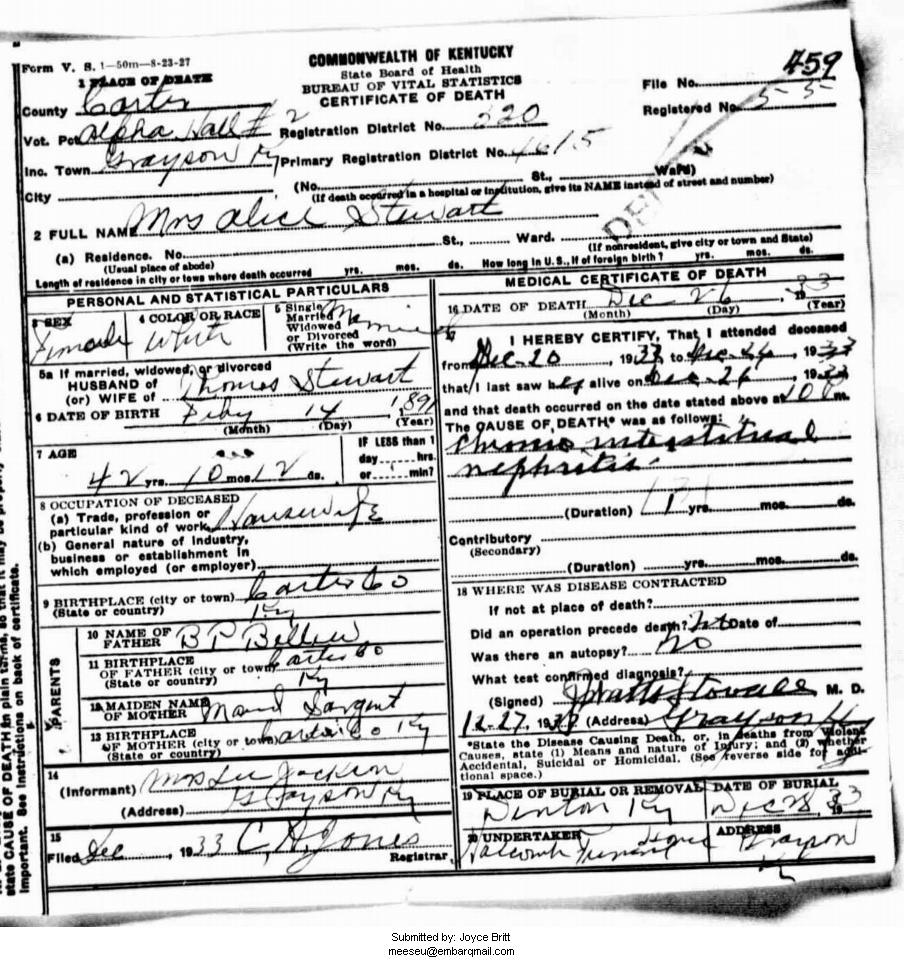 Form V. S. 1—50m—8-23-27
COMMONWEALTH OF KENTUCKY
State Board of Health
BUREAU OF VITAL STATISTICS
CERTIFICATE OF DEATH
File No. 459
Registered No. 55
1 PLACE OF DEATH
County Carter
Vot. Pct Alpha Hall #2 Registration District No. 320
Inc. Town Grayson Ky Primary Registration District No. 4615
City (No. St., Ward)
(If death occurred in a hospital or institution, give its NAME instead of street and number)
2 FULL NAME Mrs Alice Stewart
(a) Residence. No. St., Ward.
(Usual place of abode) (If nonresident, give city or town and State)
Length of residence in city or town where death occurred yrs. mos. ds. How long in U. S., if of foreign birth? yrs. mos. ds.
PERSONAL AND STATISTICAL PARTICULARS
3 SEX 4 COLOR OR RACE 5 Single Married Widowed or Divorced (Write the word)
Female White Married
5a If married, widowed, or divorced
HUSBAND of
(or) WIFE of Thomas Stewart
6 DATE OF BIRTH Feby 14 1891
(Month) (Day) (Year)
7 AGE IF LESS than 1
day hrs.
42 yrs. 10 mos. 12 ds. or min?
8 OCCUPATION OF DECEASED
(a) Trade, profession or
particular kind of work Housewife
(b) General nature of industry,
business or establishment in
which employed (or employer)
9 BIRTHPLACE (city or town) Carter Co
(State or country) Ky
PARENTS
10 NAME OF
FATHER B P Bellew
11 BIRTHPLACE
OF FATHER (city or town) Carter Co
(State or country) Ky
12 MAIDEN NAME
OF MOTHER Sargent
13 BIRTHPLACE
OF MOTHER (city or town) Carter Co Ky
(State or country)
14
(Informant) Mrs Lee Jackson
(Address) Grayson Ky
15
Filed Dec, 1933 C. A. Jones
Registrar
MEDICAL CERTIFICATE OF DEATH
16 DATE OF DEATH Dec 26, 1933
(Month) (Day) (Year)
17 I HEREBY CERTIFY, That I attended deceased
from Dec-20, 1933 to Dec-26, 1933
that I last saw her alive on Dec-26, 1933
and that death occurred on the date stated above at m.
The CAUSE OF DEATH* was as follows:
Chronic interstitial
nephritis
(Duration) yrs. mos. ds.
Contributory
(Secondary)
(Duration) yrs. mos. ds.
18 WHERE WAS DISEASE CONTRACTED
If not at place of death?
Did an operation precede death? Date of
Was there an autopsy? No
What test confirmed diagnosis?
(Signed) J Watts Stovall M. D.
12-27, 1933 (Address) Grayson Ky
*State the Disease Causing Death, or, in deaths from Violent
Causes, state (1) Means and nature of Injury; and (2) whether
Accidental, Suicidal or Homicidal. (See reverse side for addi-
tional space.)
19 PLACE OF BURIAL OR REMOVAL DATE OF BURIAL
Denton Ky Dec 28, 1933
20 UNDERTAKER ADDRESS
Holcomb Funeral Home Grayson
Ky
state CAUSE OF DEATH in plain terms, so that it may be properly
important. See instructions on back of certificate.
Submitted by: Joyce Britt
meeseu@embarqmail.com